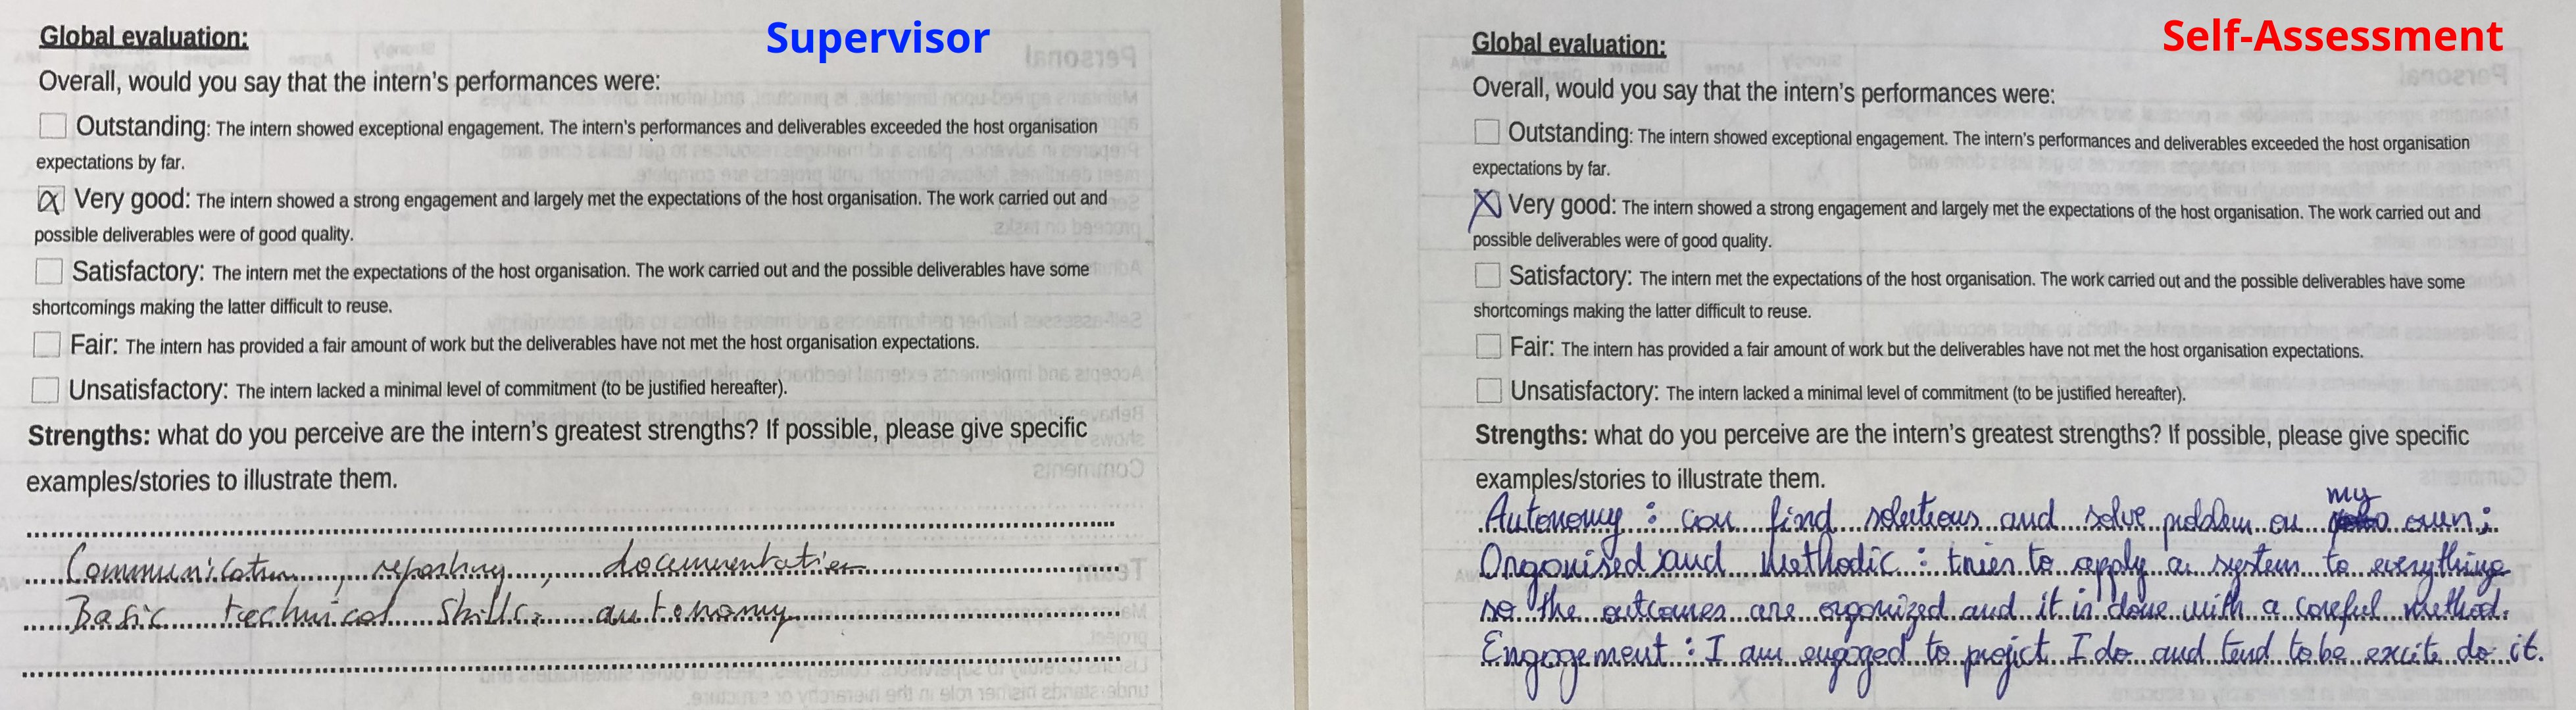 Supervisor
Global evaluation:
Overall, would you say that the intern's performances were:
Outstanding: The intern showed exceptional engagement. The intern's performances and deliverables exceeded the host organisation
expectations by far.
Very good: The intern showed a strong engagement and largely met the expectations of the host organisation. The work carried out and
possible deliverables were of good quality.
Satisfactory: The intern met the expectations of the host organisation. The work carried out and the possible deliverables have some
shortcomings making the latter difficult to reuse.
Fair: The intern has provided a fair amount of work but the deliverables have not met the host organisation expectations.
Unsatisfactory: The intern lacked a minimal level of commitment (to be justified hereafter).
Strengths: what do you perceive are the intern's greatest strengths? If possible, please give specific
examples/stories to illustrate them.
Communication, reporting, documentation
Basic technical skills, autonomy
Self-Assessment
Global evaluation:
Overall, would you say that the intern's performances were:
Outstanding: The intern showed exceptional engagement. The intern's performances and deliverables exceeded the host organisation
expectations by far.
Very good: The intern showed a strong engagement and largely met the expectations of the host organisation. The work carried out and
possible deliverables were of good quality.
Satisfactory: The intern met the expectations of the host organisation. The work carried out and the possible deliverables have some
shortcomings making the latter difficult to reuse.
Fair: The intern has provided a fair amount of work but the deliverables have not met the host organisation expectations.
Unsatisfactory: The intern lacked a minimal level of commitment (to be justified hereafter).
Strengths: what do you perceive are the intern's greatest strengths? If possible, please give specific
examples/stories to illustrate them.
Autonomy : can find solutions and solve problem on my own;
Organised and Methodic : tries to apply a system to everything
so the outcomes are organized and it is done with a careful method.
Engagement : I am engaged to project I do and tend to be excite do it.